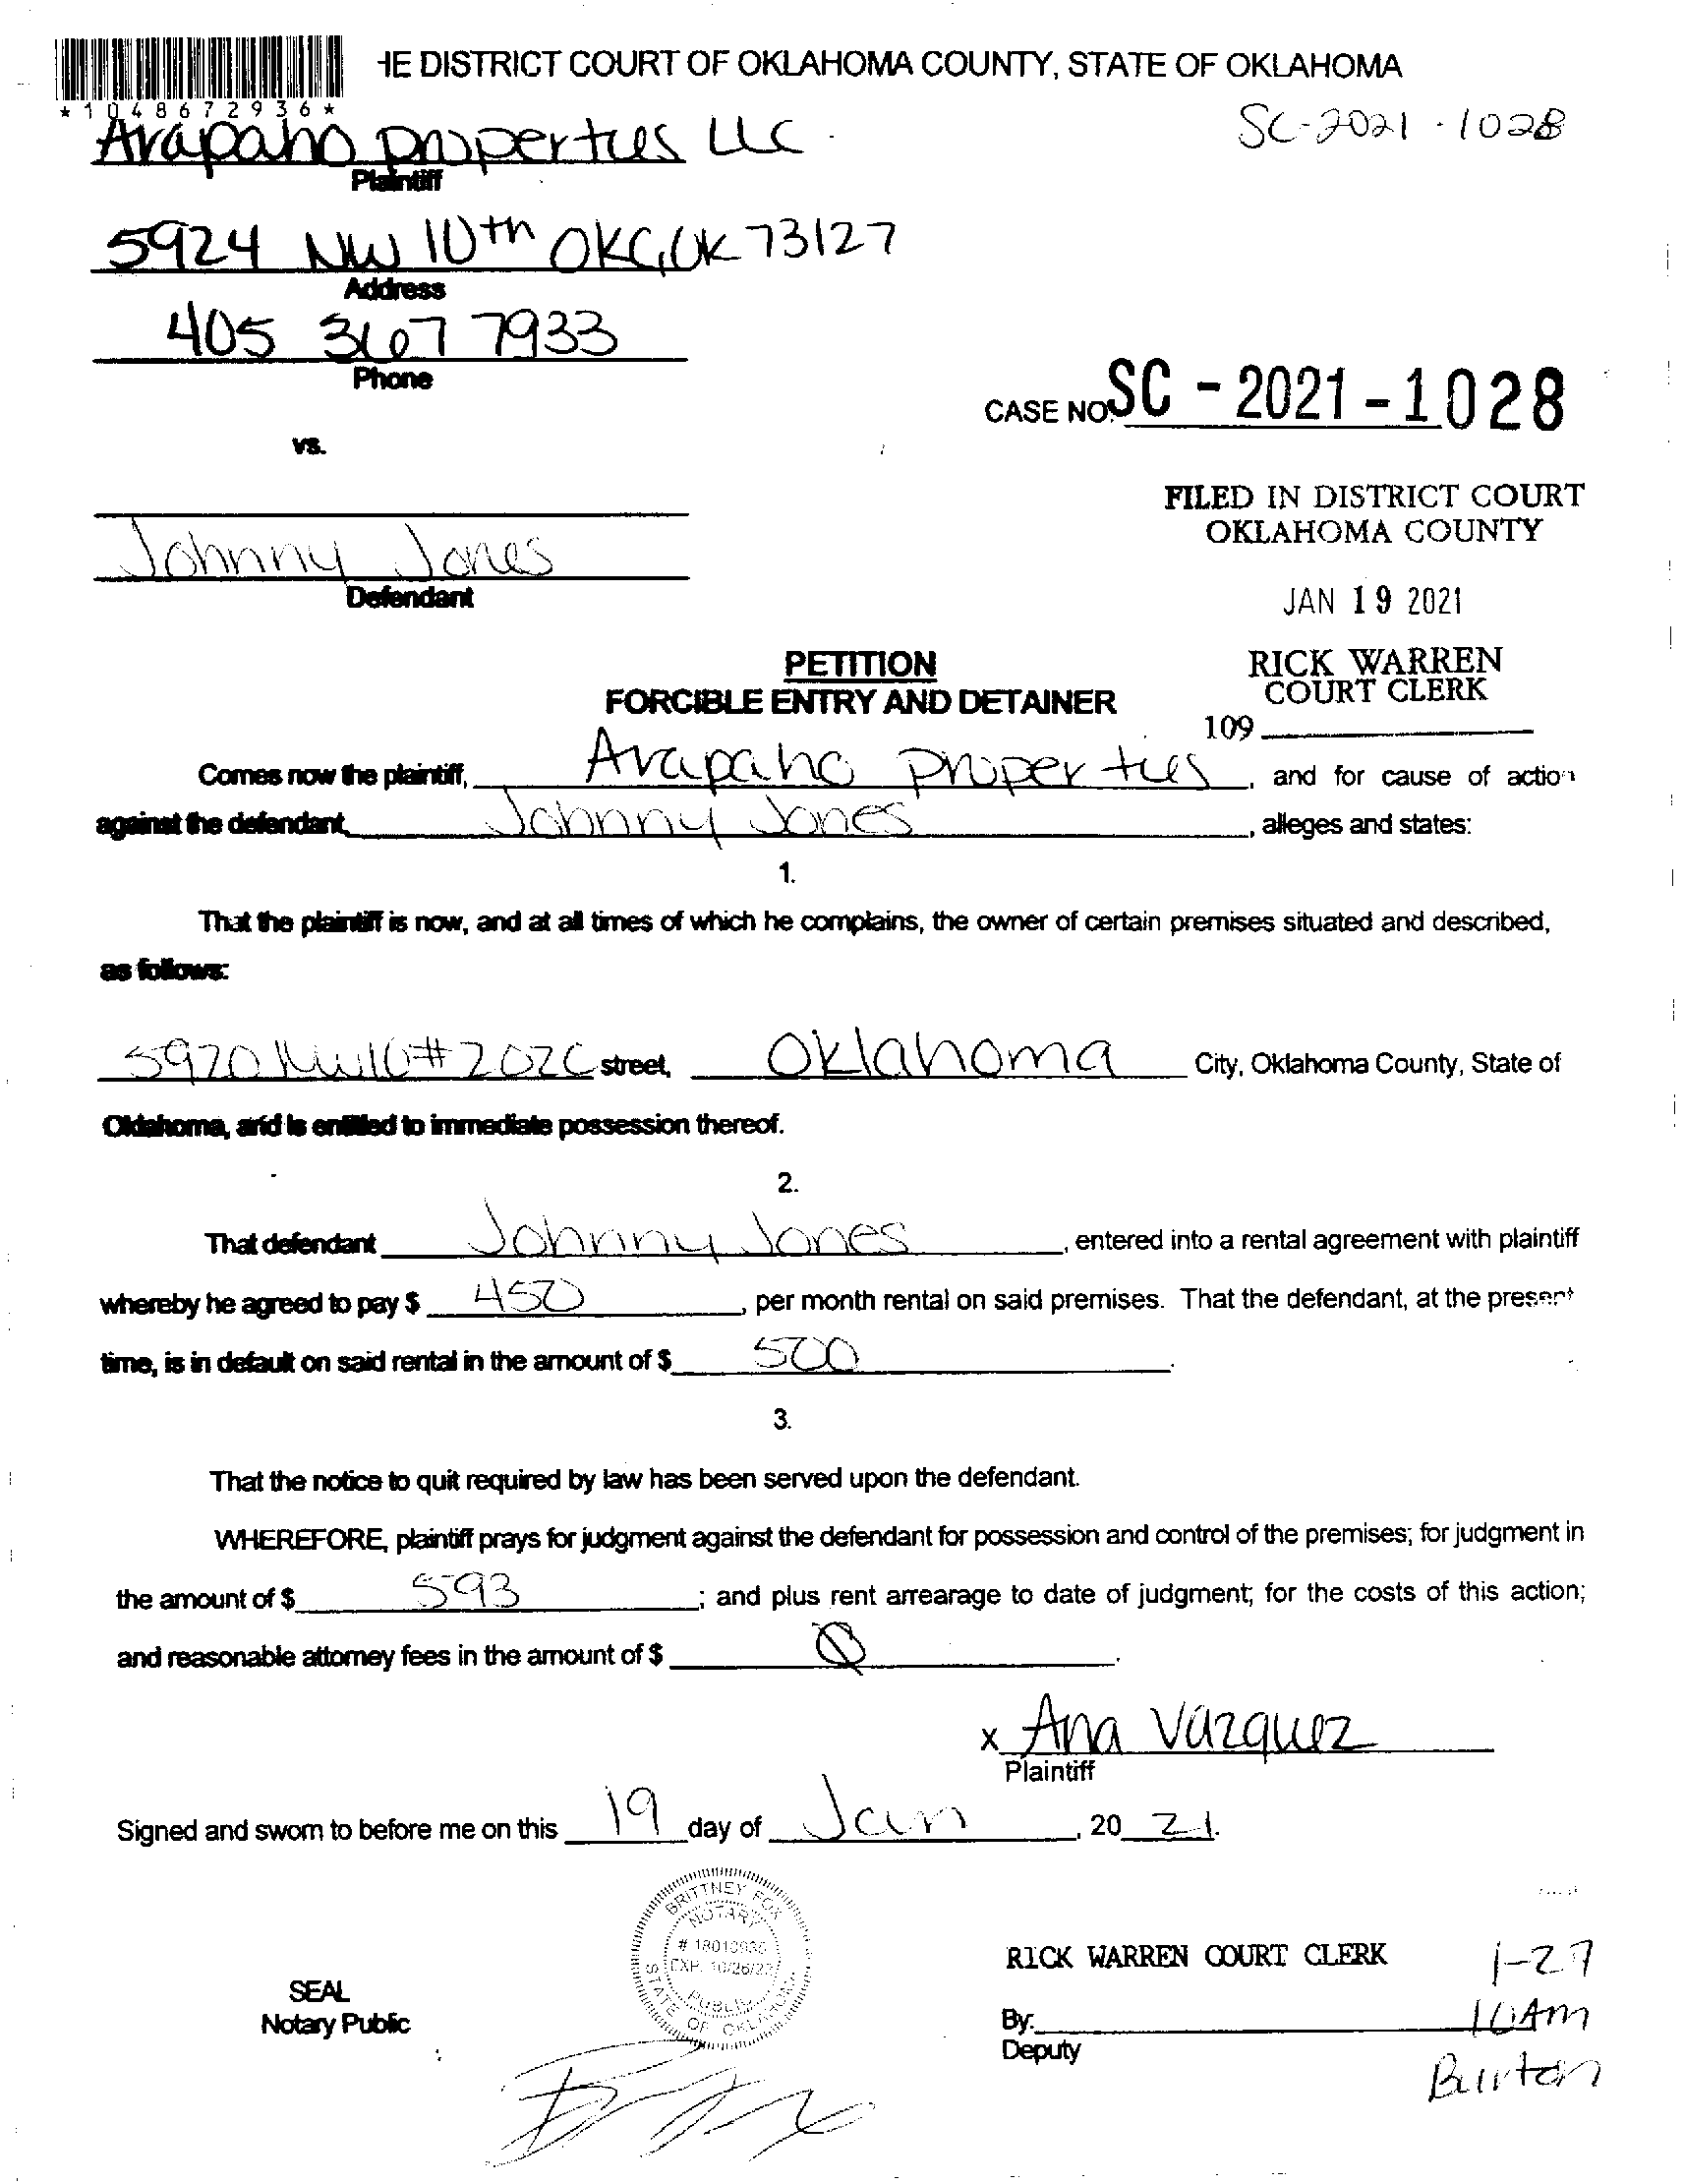 HE DISTRICT COURT OF OKLAHOMA COUNTY, STATE OF OKLAHOMA
*1048672936*
SC-2021-1028
Arapaho properties LLC
Plaintiff
5924 NW 10th OKC, OK 73127
Address
405 367 7933
Phone
CASE NO. SC-2021-1028
vs.
FILED IN DISTRICT COURT
OKLAHOMA COUNTY
Johnny Jones
Defendant
JAN 19 2021
PETITION
RICK WARREN
COURT CLERK
FORCIBLE ENTRY AND DETAINER
109
Comes now the plaintiff, Arapaho properties, and for cause of action
against the defendant, Johnny Jones, alleges and states:
1.
That the plaintiff is now, and at all times of which he complains, the owner of certain premises situated and described,
as follows:
5920 NW 10 #202C street, Oklahoma City, Oklahoma County, State of
Oklahoma, and is entitled to immediate possession thereof.
2.
That defendant Johnny Jones, entered into a rental agreement with plaintiff
whereby he agreed to pay $ 450, per month rental on said premises. That the defendant, at the present
time, is in default on said rental in the amount of $ 500.
3.
That the notice to quit required by law has been served upon the defendant.
WHEREFORE, plaintiff prays for judgment against the defendant for possession and control of the premises; for judgment in
the amount of $ 593; and plus rent arrearage to date of judgment; for the costs of this action;
and reasonable attorney fees in the amount of $ Ø.
x Ana Vazquez
Plaintiff
Signed and sworn to before me on this 19 day of Jan, 20 21.
BRITTNEY FOX
NOTARY
EXP. 10/26/22
PUBLIC
STATE OF OKLAHOMA
RICK WARREN COURT CLERK
1-27
SEAL
Notary Public
By:
10Am
Deputy
Burton